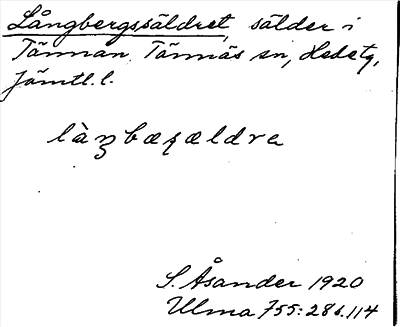 Långbergssäldret, sälder i
Tännan, Tännäs sn, Hede tg,
Jämtl. l.
S. Åsander 1920
Ulma 755:286.114